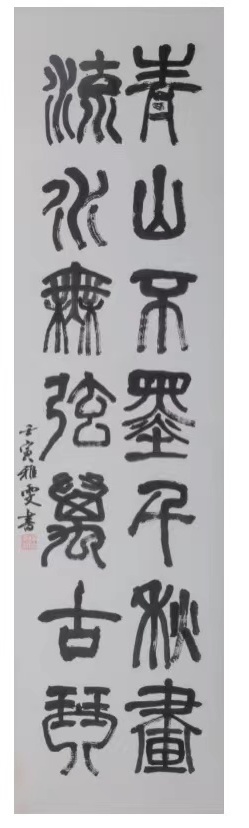 青山不墨千秋畫
流水無弦萬古琴
壬寅雅雯書